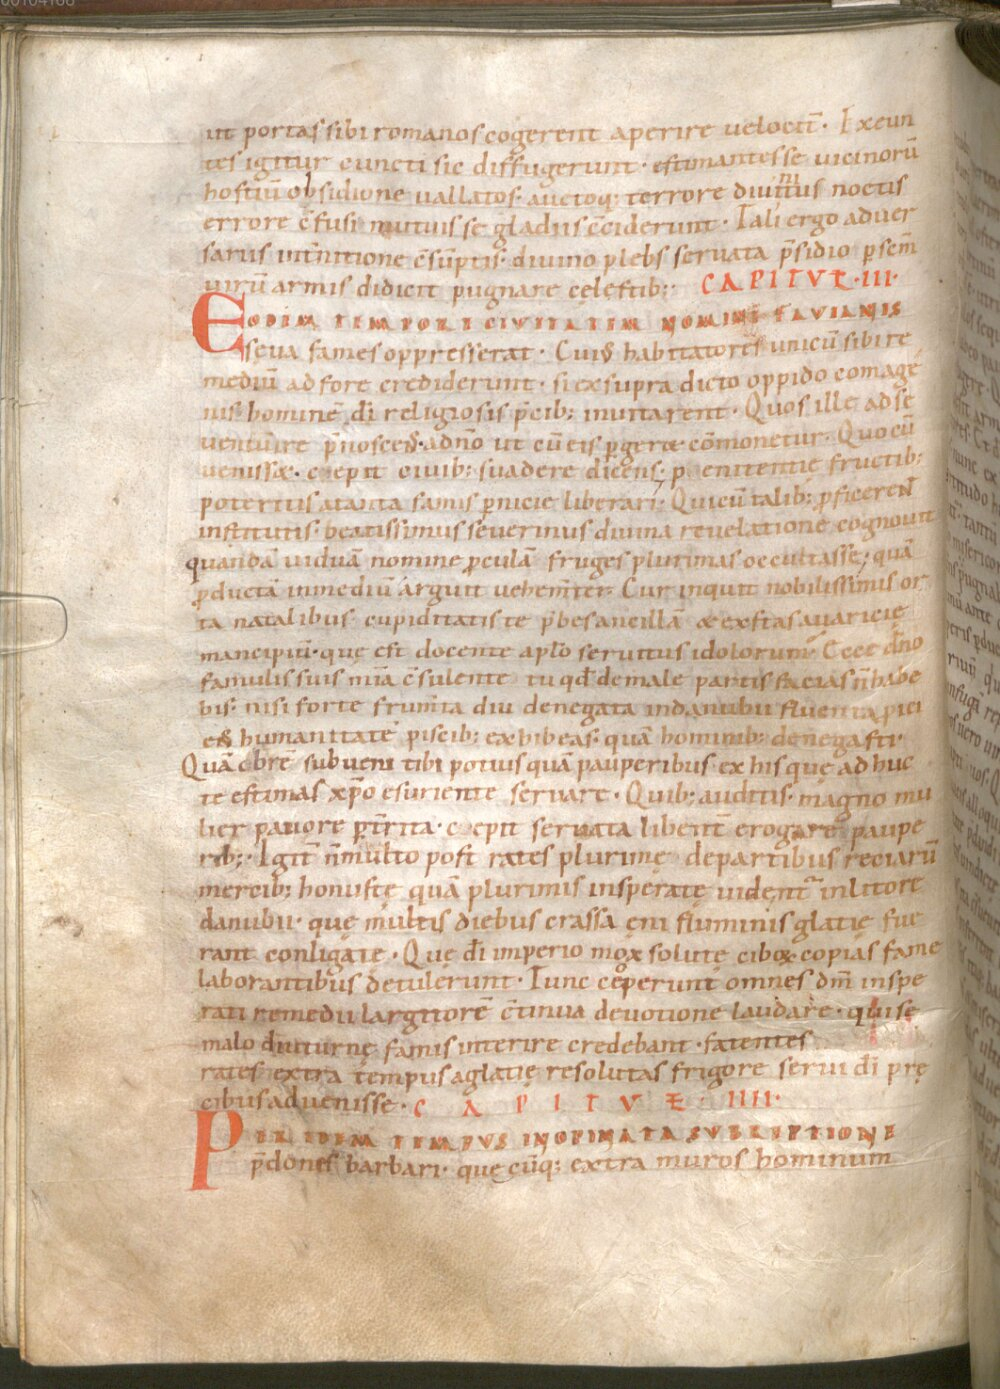 00104168
ut portas sibi romanos cogerent aperire velocit̄· Exeun
tes igitur cuncti sic diffugerunt· estimantes se vicinorū
hostiū obsidione uallatos· auctoq; terrore diuturnus noctis
errore c̄fusi mutuis se gladiis c̄ciderunt· Tali ergo aduer
sarius int̄nitione c̄sūptis· diuino plebs seruata p̄sidio p̄ sēm
uirū armis didicit pugnare celestib;: CAPITUŁ·III·
EODEM TEMPORE CIVITATEM NOMINE FAVIANIS
seua fames oppresserat· Cuiꝰ habitatores unicū sibi re
mediū adfore crediderunt· si ex supra dicto oppido comage
nis· hominē dī religiosis p̄cib; inuitarent· Quos ille ad se
uenture p̄noscenꝰ· a dn̄o ut cū eis p̄geret cōmonetur· Quo cū
uenisset· coepit ciuib; suadere dicens; poenitentie fructib;
poteritis a tanta famis p̄nicie liberari· Qui cū talib; p̄ficerent
institutis· beatissimus seuerinus diuina reuelatione cognouit
quandā uiduā nomine p̄culā fruges plurimas occultasse; quā
p̄ductā in mediū arguit uehem̄ter· Cur inquit nobilissimis or
ta natalibus· cupiditatis te p̄bes ancillā & extas auaricię
mancipiū· quę est docente ap̄lo seruitus idolorum· Ecce dn̄o
famulis suis mīa c̄sulente tu qd̄ de male partis facias n̄ habe
bis· nisi forte frum̄ta diu denegata in danubii fluenta pici
enꝰ humanitatē piscib; exhibeas· quā hominib; denegasti·
Quā obrē subueni tibi potius quā pauperibus ex his quę adhuc
te estimas xp̄o esuriente seruare· Quib; auditis· magno mu
lier pauore p̄t̄rita· coepit seruata libent̄ erogare paupe
rib;· Igit̄ n̄ multo post rates plurimę de partibus reciarū
mercib; honustę quā plurimis insperate uident̄ in litore
danubii· quę multis diebus crassa eni fluminis glatię fue
rant conligatę· Quę dī imperio mox solutę ciboꝝ copias fame
laborantibus detulerunt· Tunc cęperunt omnes dm̄ inspe
rati remedii largitorē c̄tinua deuotione laudare· qui se
malo diuturnę famis interire credebant· fatentes
rates extra tempus a glatię resolutas frigore serui dī pre
cibus aduenisse· CAPITUŁ· IIII·
PER IDEM TEMPUS INOPINATA SUBREPTIONE
p̄dones barbari· quecūq; extra muros hominum